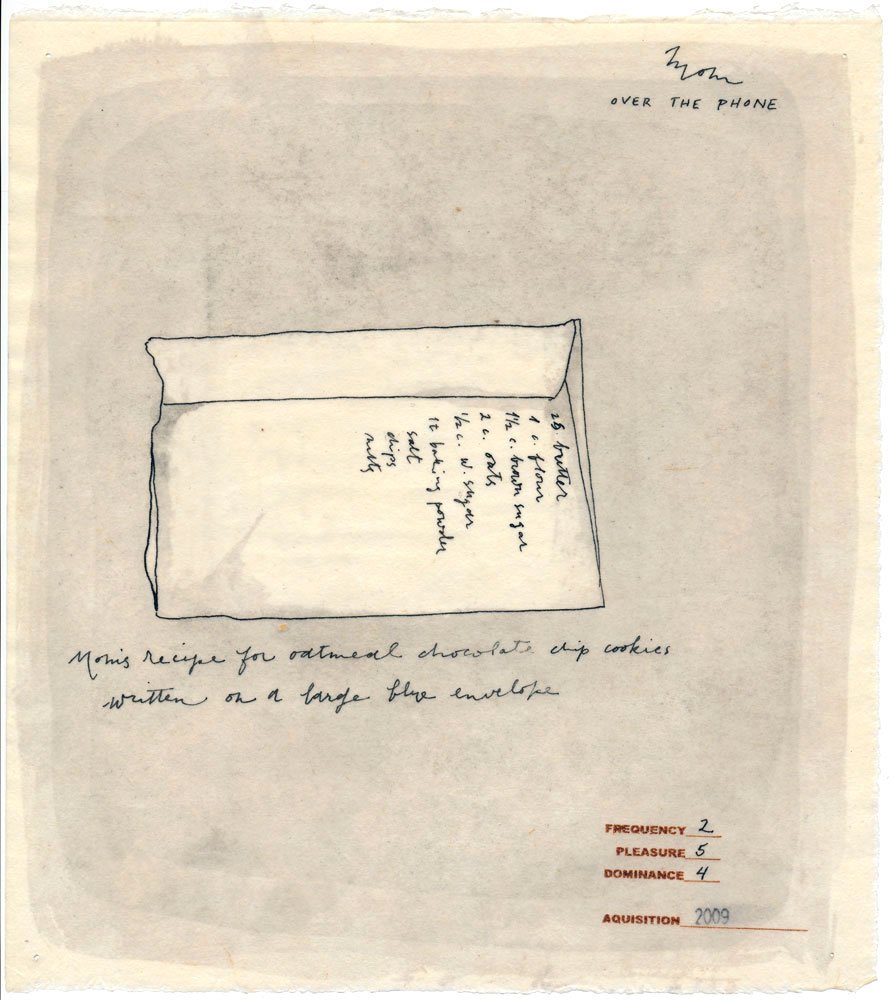 Mom
OVER THE PHONE
2 b. butter
1 c. flour
1 1/2 c. brown sugar
2 c. oats
1/2 c. w. sugar
1 t baking powder
salt
chips
nuts
Mom's recipe for oatmeal chocolate chip cookies
written on a large blue envelope
FREQUENCY 2
PLEASURE 5
DOMINANCE 4
AQUISITION 2009